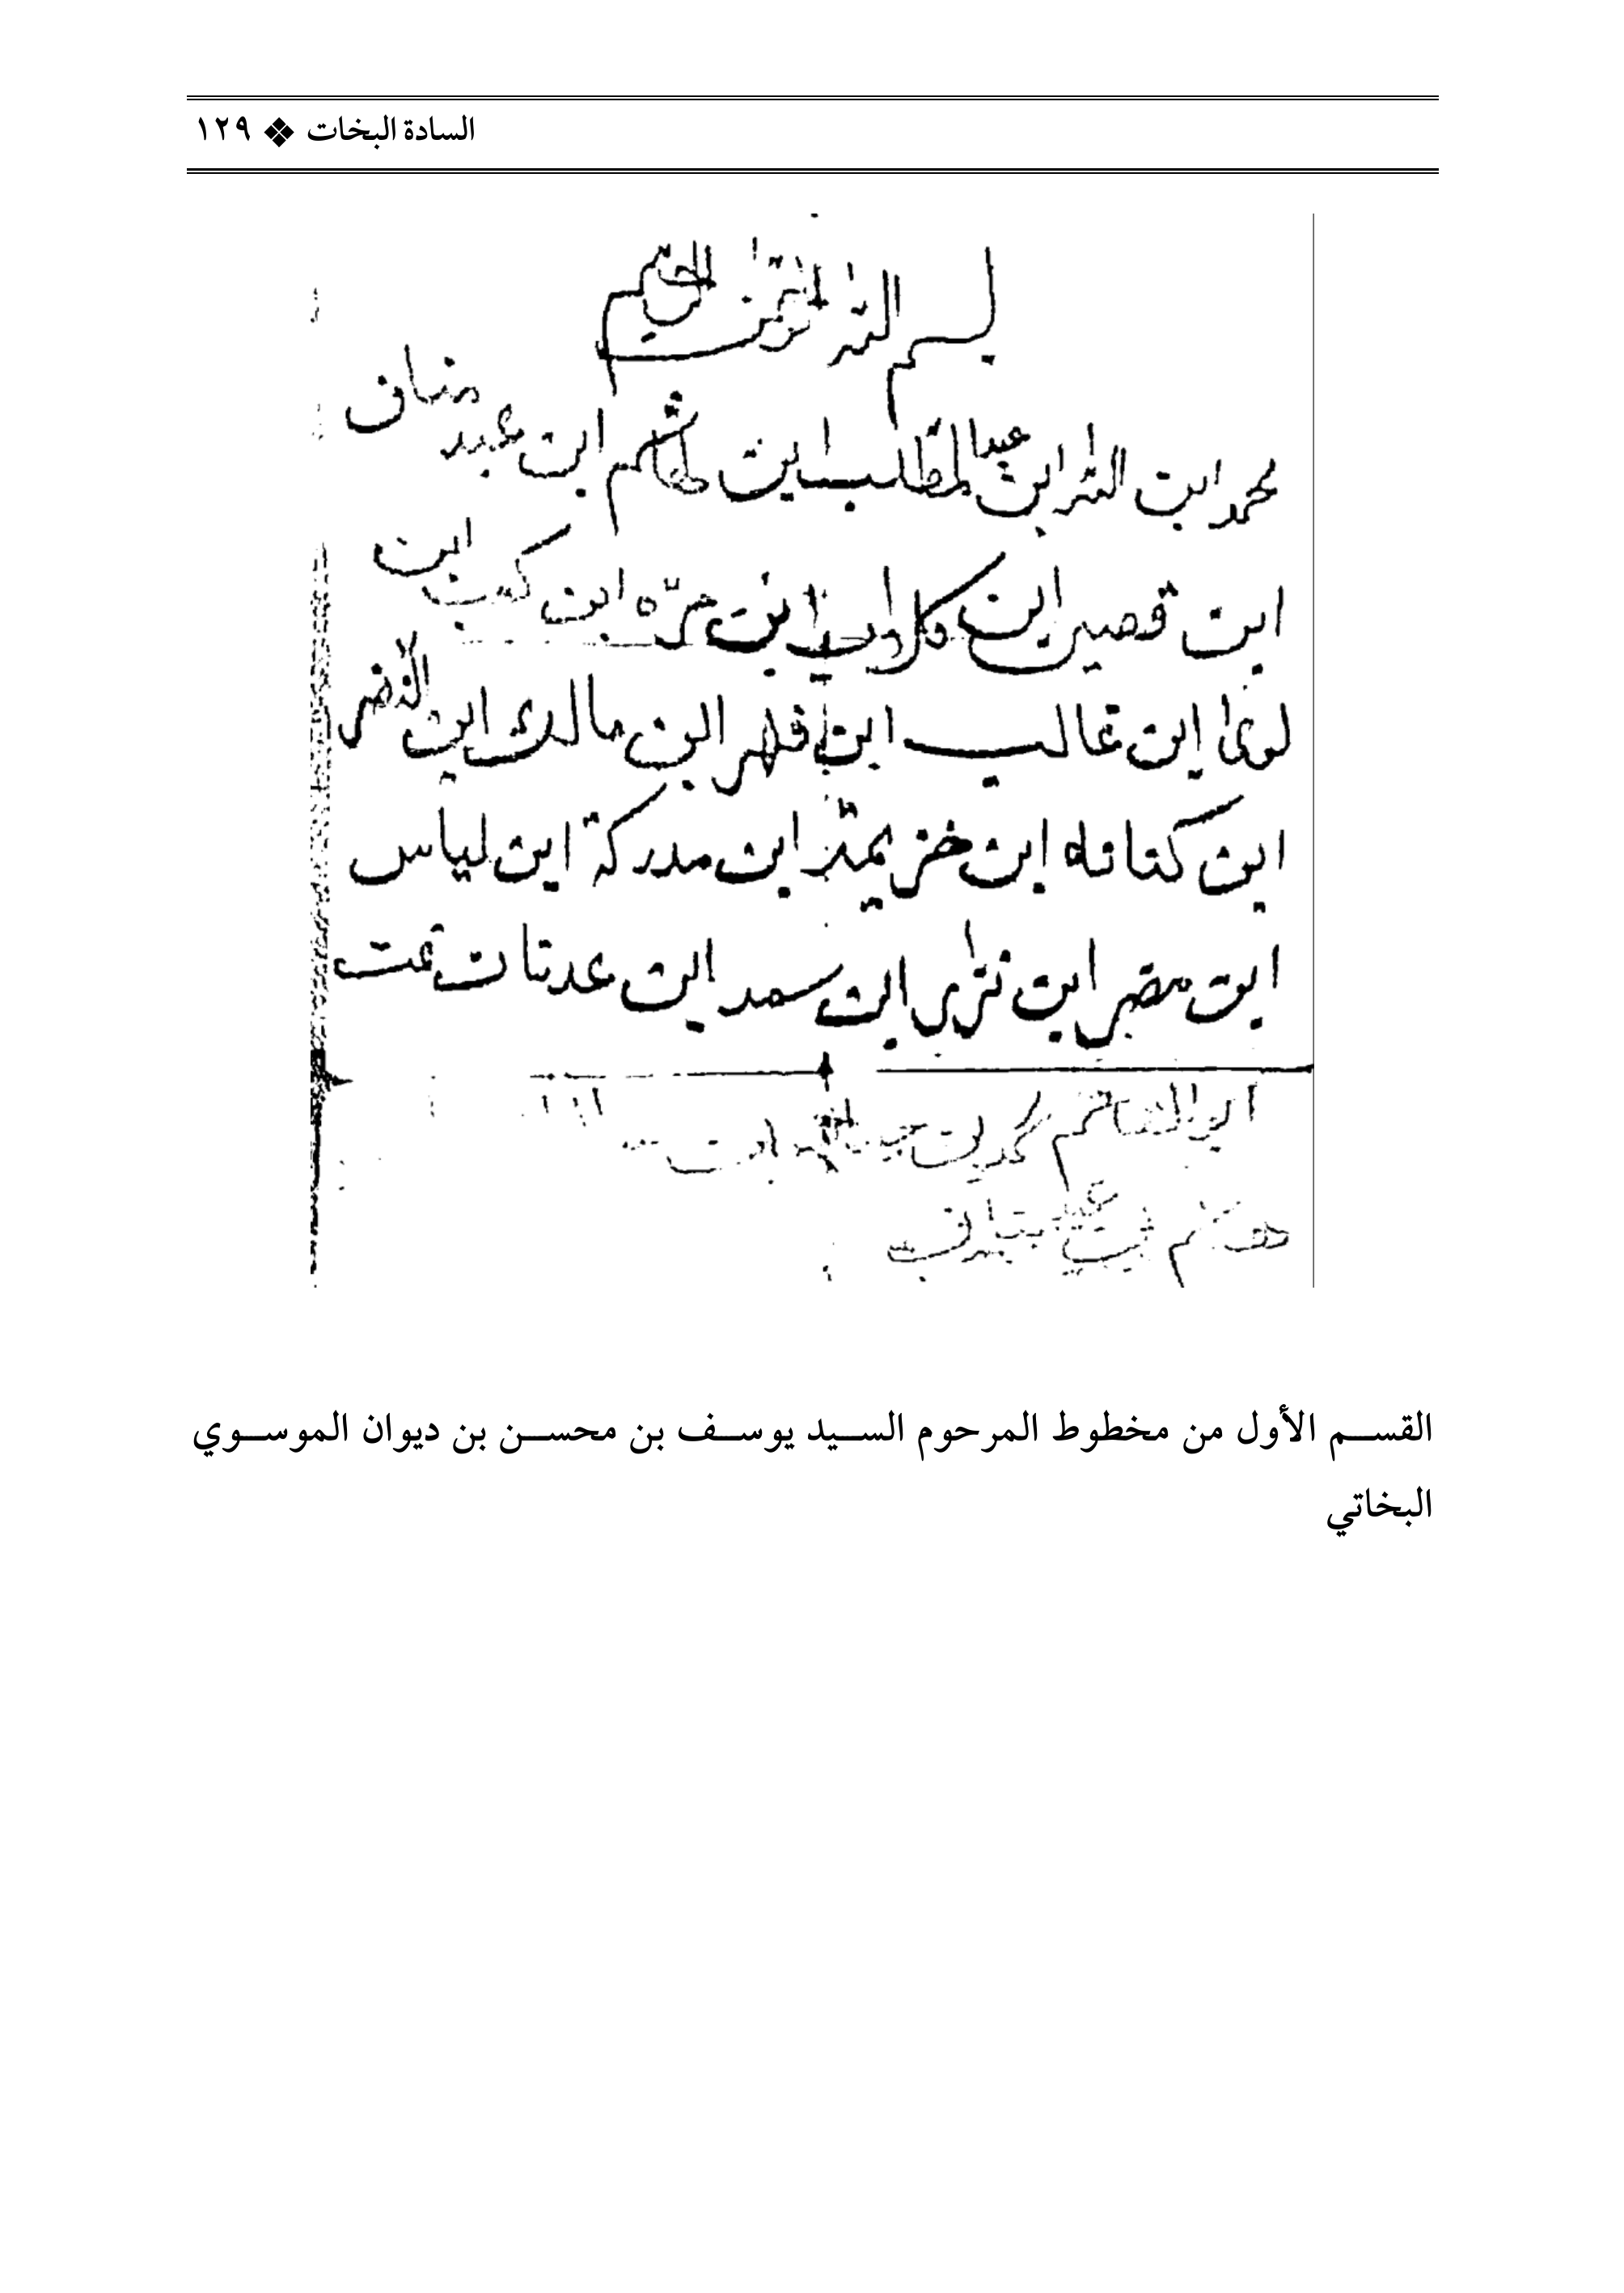 السادة البخات ❖ ١٢٩
بسم الله الرحمن الرحيم
محمد ابن الله ابن عبد المطلب ابن هاشم ابن عبد مناف
ابن قصي ابن كلاب ابن مرّه ابن كعب ابن
لوى ابن غالب ابن فهر ابن مالك ابن النضر
ابن كنانه ابن خزيمة ابن مدركة ابن لياس
ابن مضر ابن نزار ابن سعد ابن عدنان تمت
ابو القاسم محمد بن عبد الله ابن
هاشم بن عبد مناف
القسم الأول من مخطوط المرحوم السيد يوسف بن محسن بن ديوان الموسوي
البخاتي